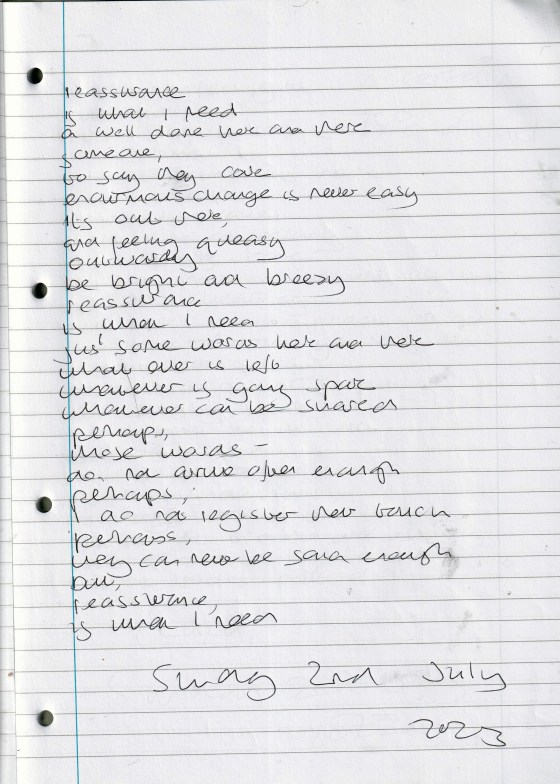 reassurance
is what I need
a well done here and there
someone,
to say they care
enormous change is never easy
its out there,
and feeling queasy
outwardly
be bright and breezy
reassurance
is what I need
just some words here and there
what ever is left
whatever is going spare
whatever can be shared
perhaps,
those words -
do not arrive often enough
perhaps,
I do not register their touch
perhaps,
they can never be said enough
but,
reassurance,
is what I need
Sunday 2nd July
2023